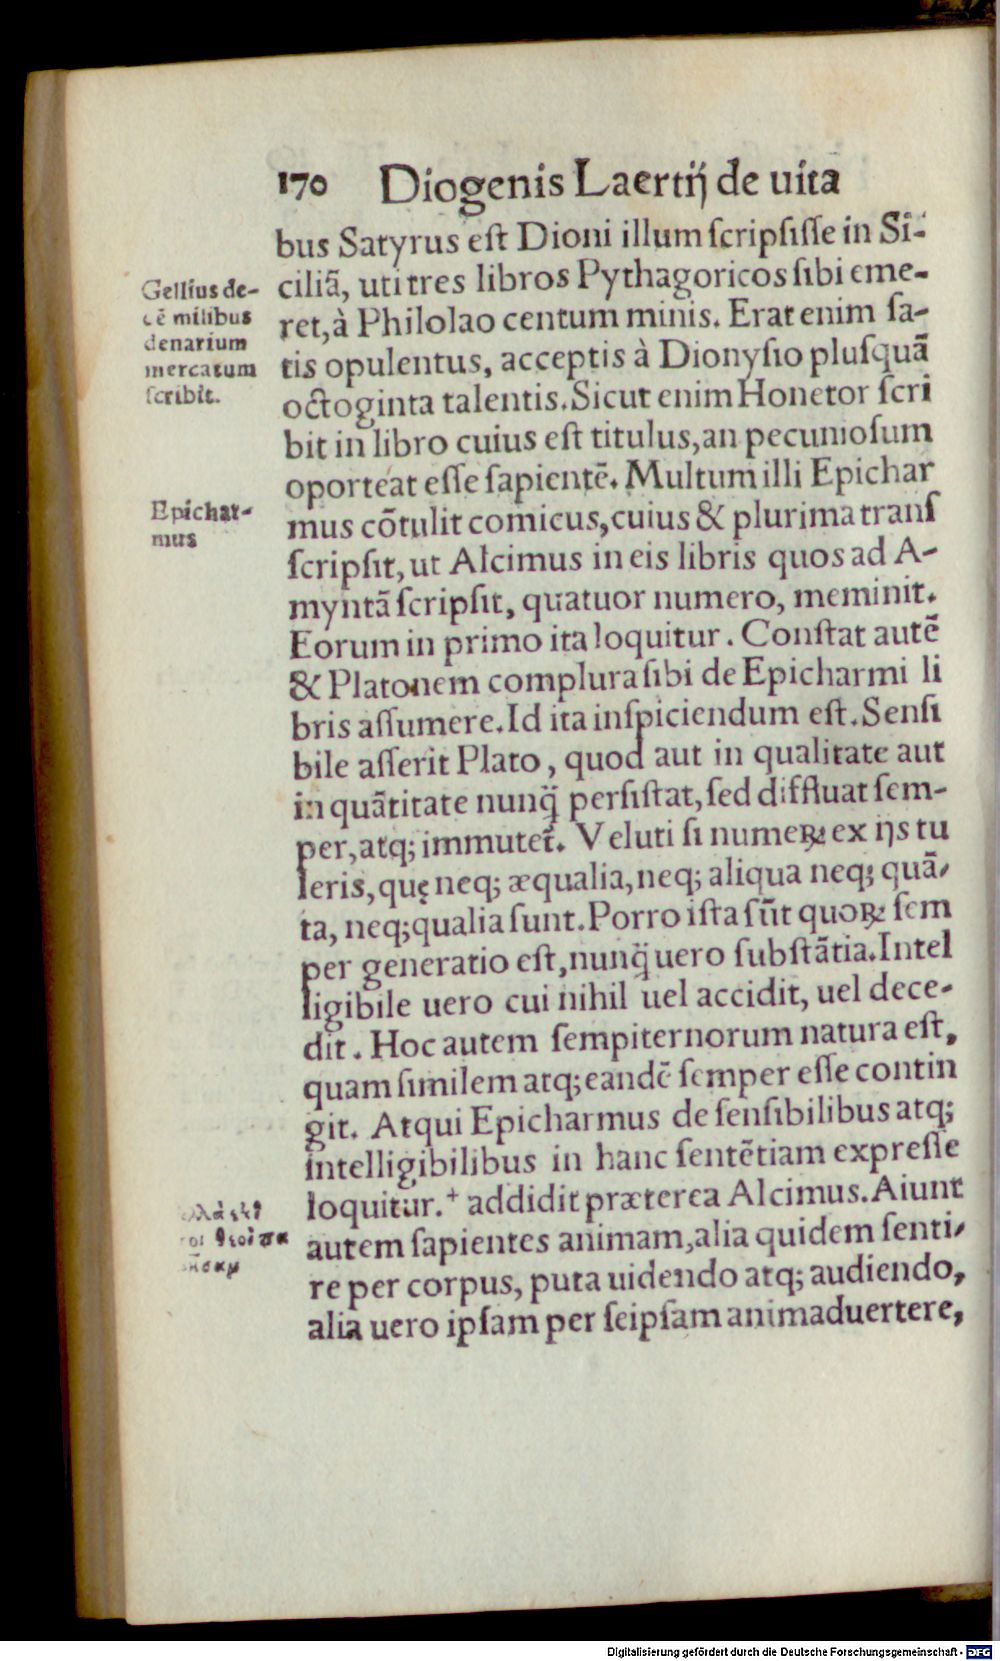 170 Diogenis Laertij de uita
bus Satyrus est Dioni illum scripsisse in Si-
ciliã, uti tres libros Pythagoricos sibi eme-
ret, à Philolao centum minis. Erat enim sa-
tis opulentus, acceptis à Dionysio plusquã
octoginta talentis. Sicut enim Honetor scri
bit in libro cuius est titulus, an pecuniosum
oporteat esse sapientẽ. Multum illi Epichar
mus cõtulit comicus, cuius & plurima trans
scripsit, ut Alcimus in eis libris quos ad A-
myntã scripsit, quatuor numero, meminit.
Eorum in primo ita loquitur. Constat autẽ
& Platonem complura sibi de Epicharmi li
bris assumere. Id ita inspiciendum est. Sensi
bile asserit Plato, quod aut in qualitate aut
in quãtitate nunq̃ persistat, sed diffluat sem-
per, atq; immutet᷑. Veluti si numeꝝ ex ijs tu
leris, quę neq; æqualia, neq; aliqua neq; quã-
ta, neq; qualia sunt. Porro ista sũt quoꝝ sem
per generatio est, nunq̃ uero substãtia. Intel
ligibile uero cui nihil uel accidit, uel dece-
dit. Hoc autem sempiternorum natura est,
quam similem atq; eandẽ semper esse contin
git. Atqui Epicharmus de sensibilibus atq;
intelligibilibus in hanc sentẽtiam expresse
loquitur.+ addidit præterea Alcimus. Aiunt
autem sapientes animam, alia quidem senti-
re per corpus, puta uidendo atq; audiendo,
alia uero ipsam per seipsam animaduertere,
Gellius de-
cẽ milibus
denarium
mercatum
scribit.
Epichar-
mus
Digitalisierung gefördert durch die Deutsche Forschungsgemeinschaft - DFG